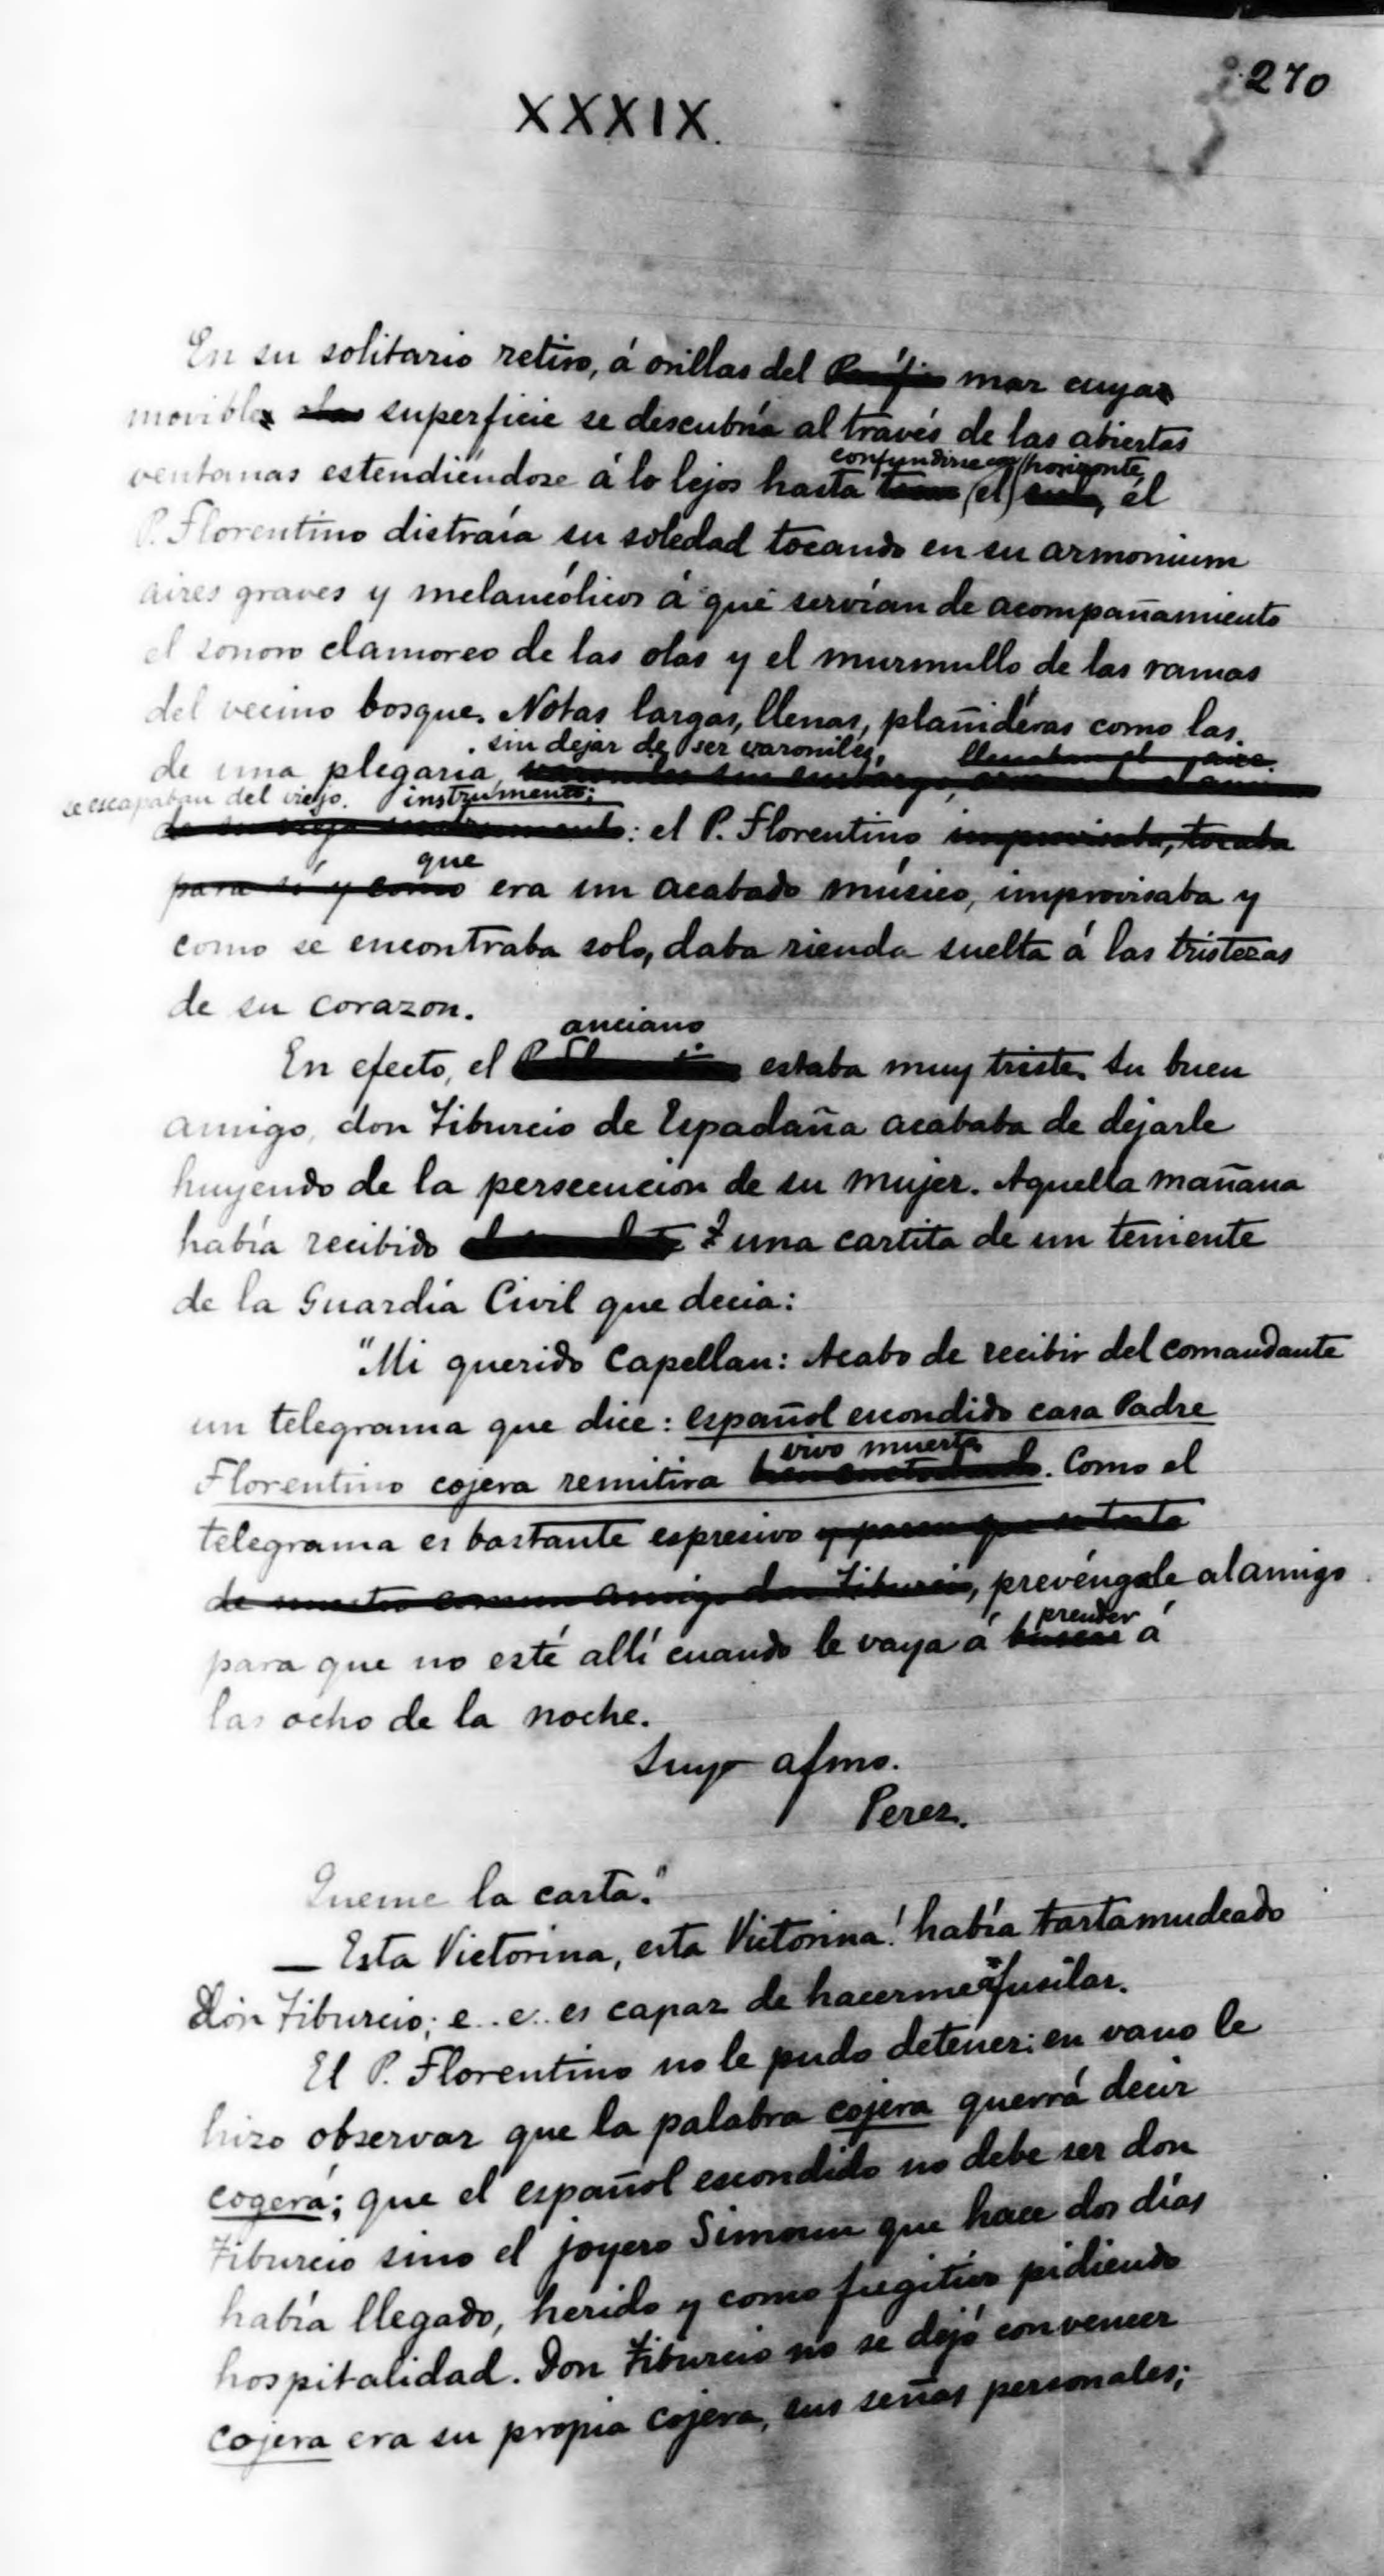 270
XXXIX.
En su solitario retiro, á orillas del mar cuya
movible superficie se descubría al través de las abiertas
confundirse con horizonte,
ventanas estendiéndose á lo lejos hasta (el) el
P. Florentino distraía su soledad tocando en su armonium
aires graves y melancólicos á que servían de acompañamiento
el sonoro clamoreo de las olas y el murmullo de las ramas
del vecino bosque. Notas largas, llenas, plañideras como las
sin dejar de ser varoniles, llenaban el aire
de una plegaria,
se escapaban del viejo instrumento;
: el P. Florentino improvisaba, tocaba
que
para sí y como era un acabado músico, improvisaba y
como se encontraba solo, daba rienda suelta á las tristezas
de su corazon.
anciano
En efecto, el estaba muy triste. Su buen
amigo, don Tiburcio de Espadaña acababa de dejarle
huyendo de la persecucion de su mujer. Aquella mañana
había recibido una cartita de un teniente
de la Guardia Civil que decia:
"Mi querido Capellan: Acabo de recibir del comandante
un telegrama que dice: español escondido casa Padre
vivo muerto
Florentino cojera remitira . Como el
telegrama es bastante espresivo y parece que se trata
de nuestro comun amigo don Tiburcio, prevéngale al amigo
prender
para que no esté allí cuando le vaya á buscar á
las ocho de la noche.
Suyo afmo.
Perez.
Queme la carta."
— Esta Victorina, esta Victorina! había tartamudeado
don Tiburcio; e.. e.. es capaz de hacerme afusilar.
El P. Florentino no le pudo detener: en vano le
hizo observar que la palabra cojera querrá decir
cogerá; que el español escondido no debe ser don
Tiburcio sino el joyero Simoun que hace dos días
había llegado, herido y como fugitivo pidiendo
hospitalidad. Don Tiburcio no se dejó convencer
cojera era su propia cojera, sus señas personales;